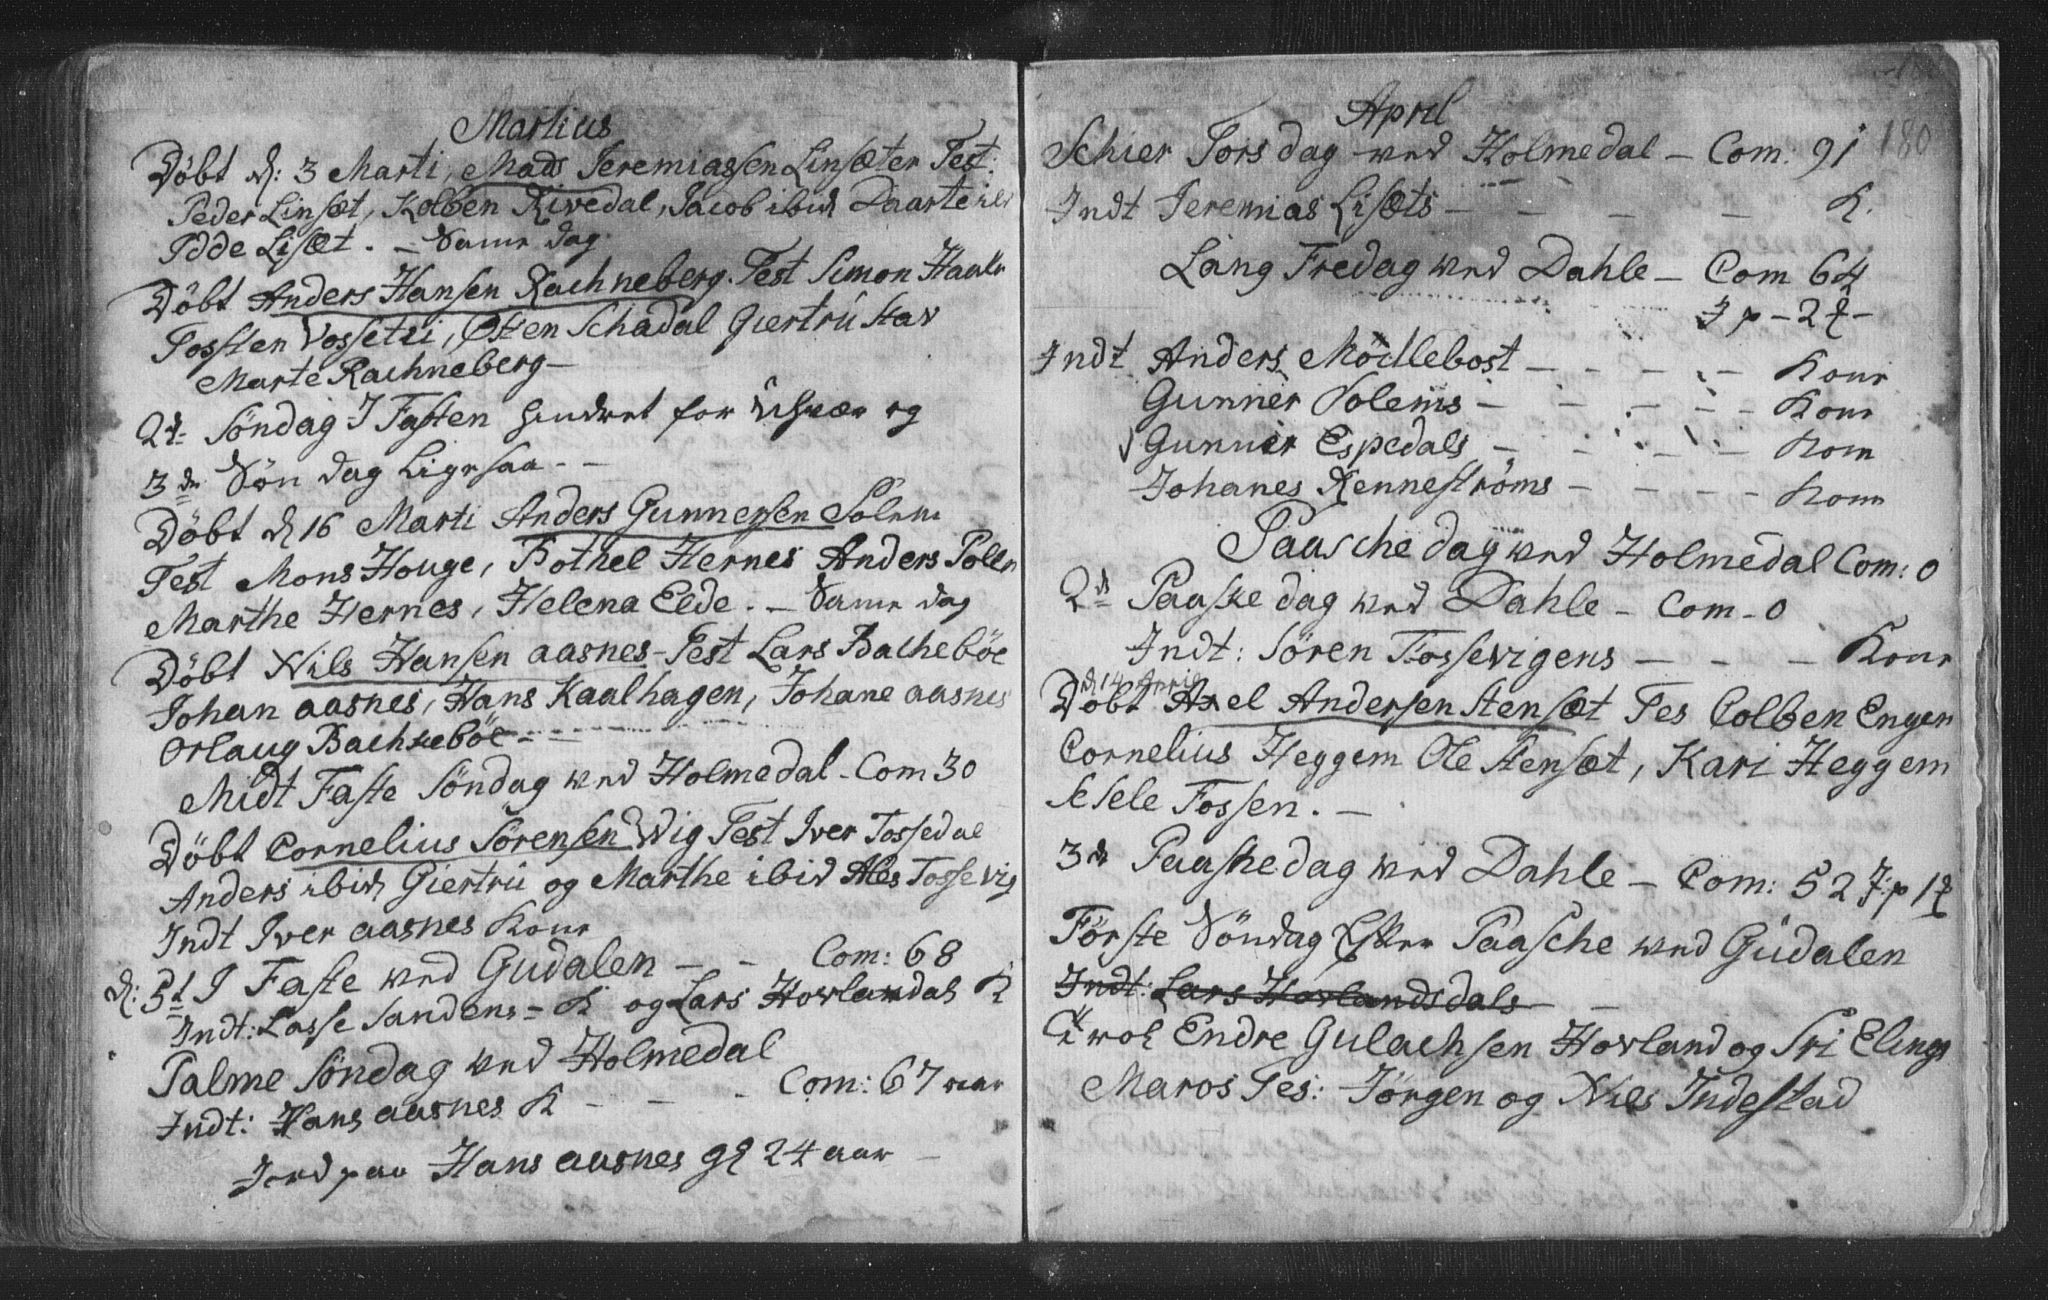 Martius
Döbt d: 3 Marti, Mads Jeremiassen Linsæter Test:
Peder Linsæt, Kolben Rivedal, Jacob ibid Daarte
Idde Lisæt. – Same dag.
Döbt Anders Hansen Rachneberg. Test Simon
Tossten Vossetei, Osten Schadal Giertrú stav
Marte Rachneberg –
2d Söndag I Fasten hindret for Uhvær og
3de Sön dag Ligesaa - -
Döbt d 16 Marti Anders Gunnersen Solem
Test Mons Houge, Bothel Hernes Anders Pollen
Marthe Hernes, Helena Eede. – Same dag
Döbt Nils Hansen aasnes – Test Lars Bacheböe
Johan aasnes, Hans Kaalhagen, Johane aasnes
Orlaug Bachkeböe - -
Midt Faste Söndag ved Holmedal – Com 30
Döbt Cornelius Sörensen Wig Test Iver Tossedal
Anders ibid, Giertru og Marthe ibid Ales Tossevig
Indt Iver aasnes Kone
d: 5t I Faste ved Gudalen – – Com: 68
Indt: Lasse Sandens = K og Lars Hovlandals K
Palme Söndag ved Holmedal
Com: 67
Indt: Hans aasnes K – – –
Jord paa Hans aasnes 24 aar –
180
April
Schier Torsdag ved Holmedal – Com. 91
Indt Jeremias Lisæts – – – – K.
Lang Fredag ved Dahle – Com 64
J p – 2
Indt Anders Mödlebost – – – – Kone
Gunner Solems – – – – Kone
Gunner Espedals – – – – Kone
Johanes Renneströms – – – – Kone
Paasche dag ved Holmedal Com: 0
2d Paaske dag ved Dahle – Com – 0
Indt: Sören Tossevigens – – – Kone
d 14 Aprill
Döbt Axel Andersen Stensæt Tes Colben Enger
Cornelius Heggem Ole Stensæt, Kari Heggem
Sesele Fossen. –
3d Paaskedag ved Dahle – Com: 52 J: p 1
Förste Söndag Efter Paasche ved Gudalen
Indt: Lars Hovlandsdals –
Endre Gulachsen Hovland og Sri Elings
Maros Tes: Jörgen og Nils Indestad